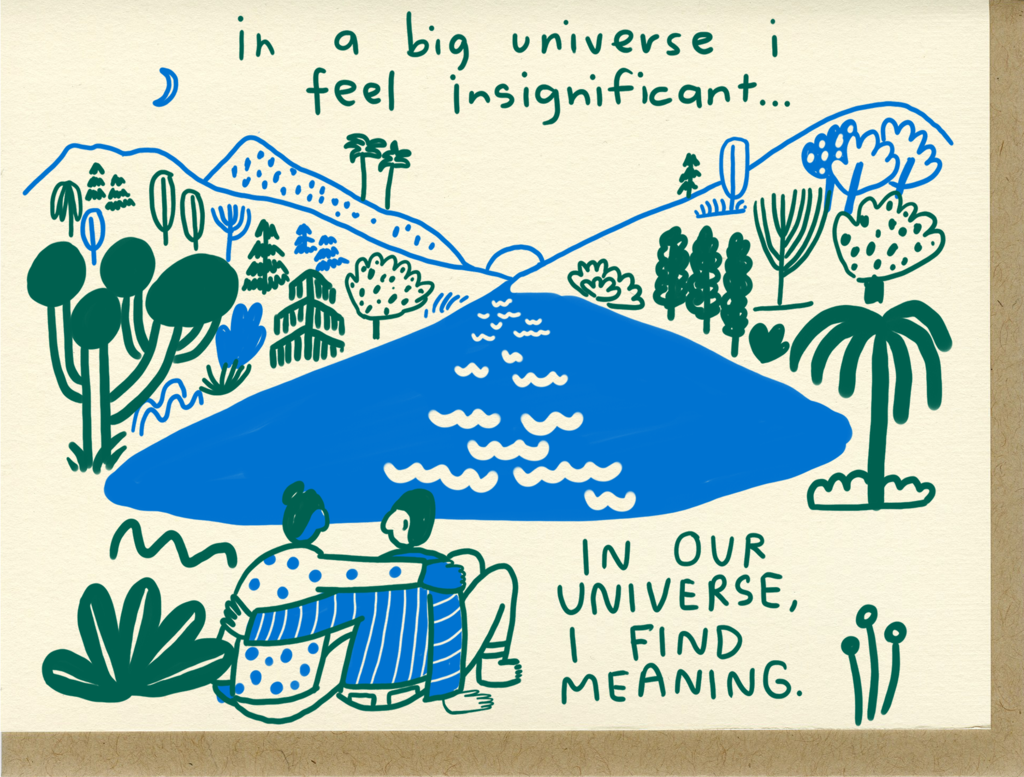 in a big universe i
feel insignificant...
IN OUR
UNIVERSE,
I FIND
MEANING.